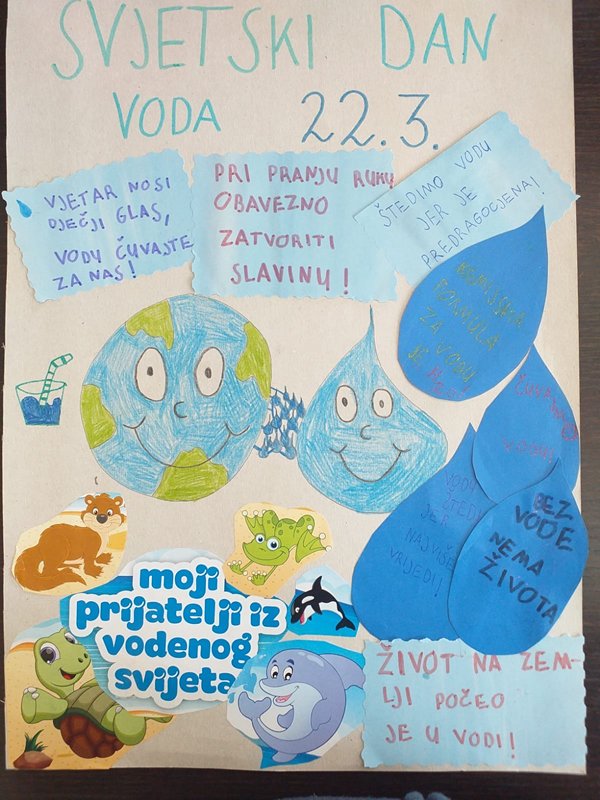 SVJETSKI DAN
VODA 22.3.
VJETAR NOSI
DJEČJI GLAS,
VODU ČUVAJTE
ZA NAS!
PRI PRANJU RUKU
OBAVEZNO
ZATVORITI
SLAVINU!
ŠTEDIMO VODU
JER JE
PREDRAGOCJENA!
KEMIJSKA
FORMULA
ZA VODU
JE
VODU
ŠTEDI
JER
NAJVIŠE
VRIJEDI!
BEZ
VODE
NEMA
ŽIVOTA
moji
prijatelji iz
vodenog
svijeta
ŽIVOT NA ZEM-
LJI POČEO
JE U VODI!